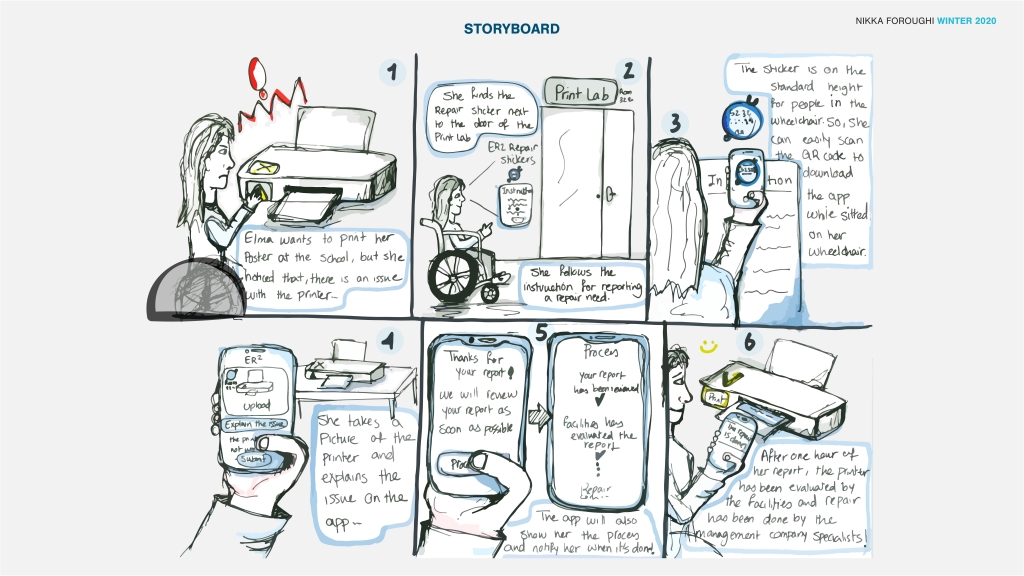 STORYBOARD
NIKKA FOROUGHI WINTER 2020
1
Elma wants to print her
Poster at the school, but she
noticed that, there is an issue
with the printer--
2
She finds the
Repair sticker next
to the door of the
Print Lab
Print Lab
Room
ER2 Repair
stickers
Instruction
She follows the
instruction for reporting
a repair need.
3
The sticker is on the
standard height
for people in the
wheelchair. So, she
can easily scan
the QR code to
download
the app
while sitted
on her
wheelchair.
In tion
4
ER²
Room
upload
Explain the issue
the prin
not w
Submit
She takes a
Picture of the
printer and
explains the
issue on the
app--
5
Thanks for
your report!
we will review
your report as
soon as possible
Proc
Process
your report
has been reviewed
facilities has
evaluated the
report
Repair
The app will also
show her the process
and notify her when it's done!
6
Print
the repair
is done
After one hour of
her report, the printer
has been evaluated by
the facilities and repair
has been done by the
management company specialists!